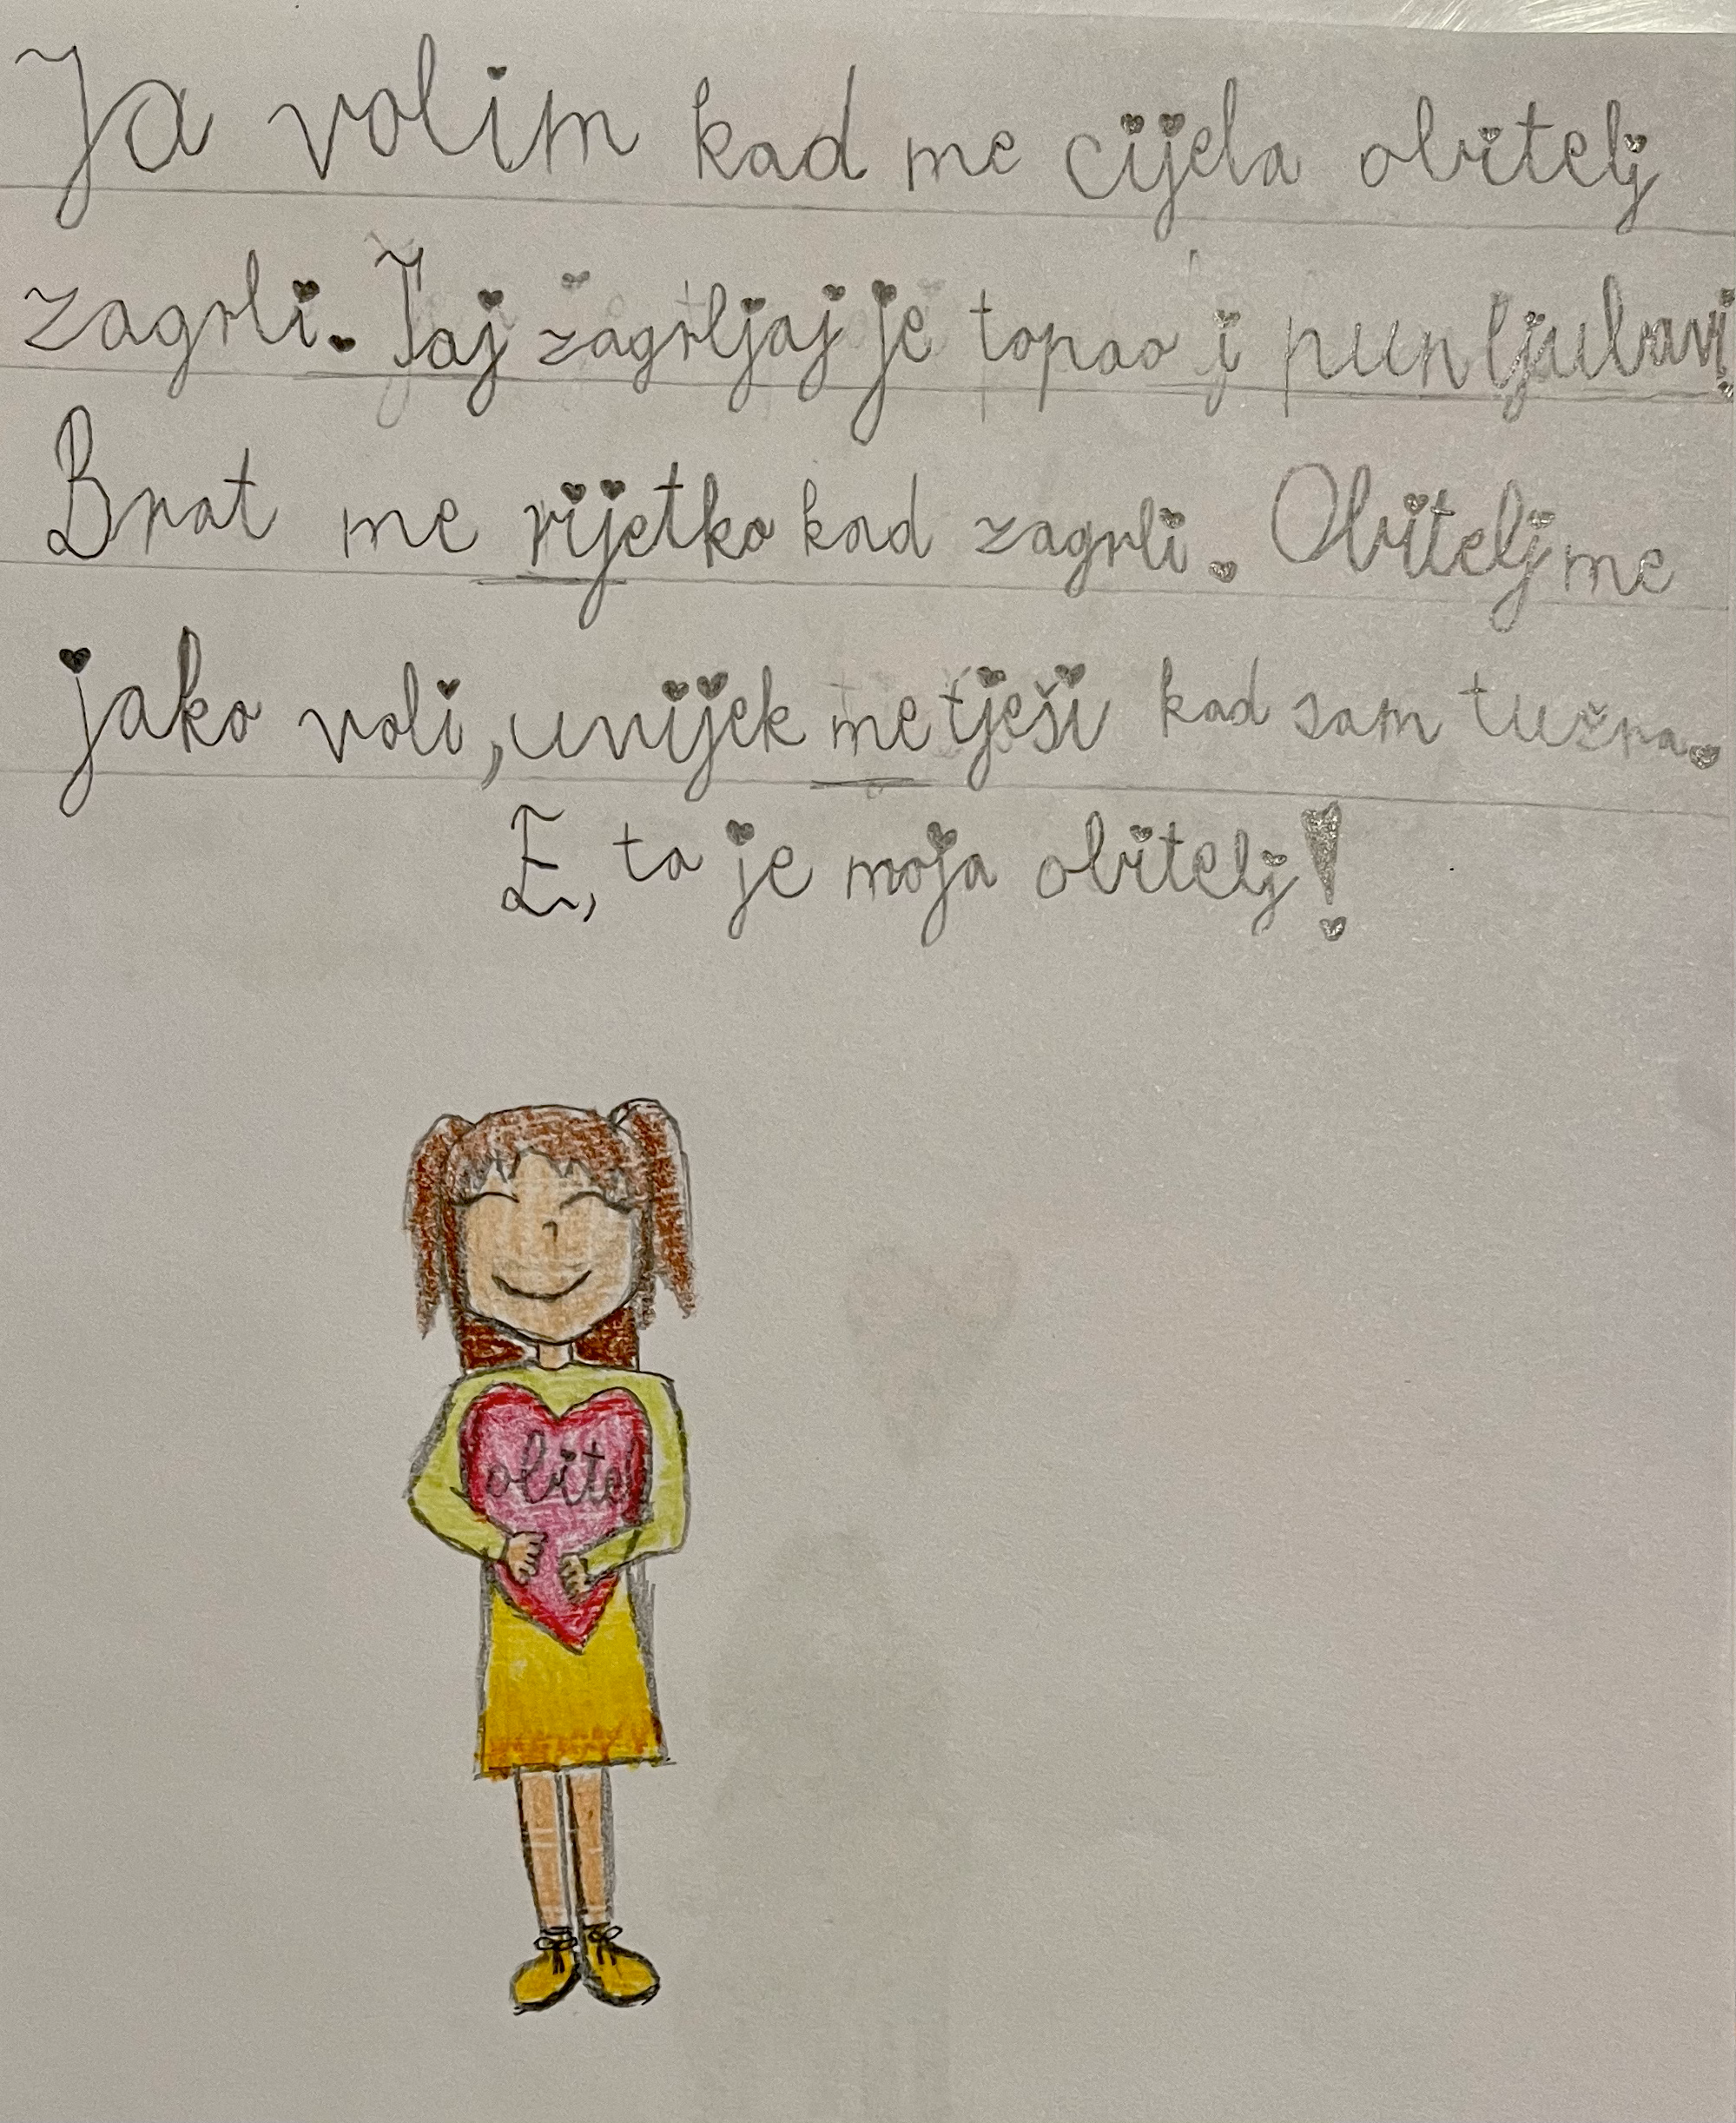 Ja volim kad me cijela obitelj
zagrli. Taj zagrljaj je topao i pun ljubavi!
Brat me rijetko kad zagrli. Obitelj me
jako voli, uvijek me tješi kad sam tužna.
E, to je moja obitelj!
obitelj